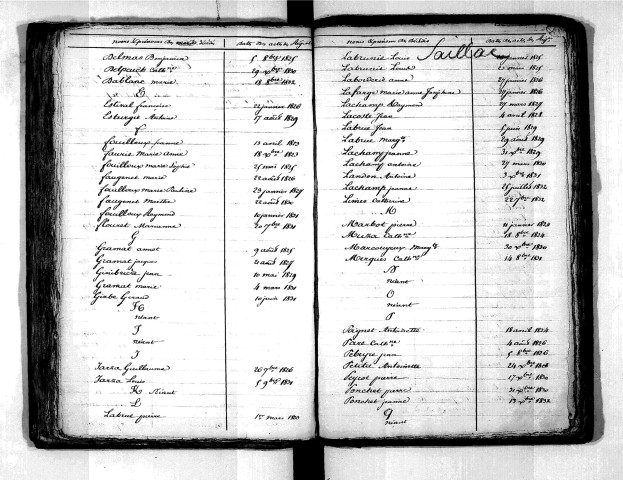 Noms & prénoms des décédés Date des actes de
Delmas Benjamin 5 8bre 1825
Delpeuch Cathne 29 1830
Dablanc marie 18 8bre 1832
E
Estival francoise 22 janvier 1826
Esturgie Antoine 17 août 1829
F
fouilloux jeanne 13 avril 1823
fauris Marie Anne 18 1823
fouilloux marie Sophie 25 mai 1825
faugenet marie 22 août 1826
failloux marie 23 janvier 1827
faugenet Marthe 22 août 1830
fouilloux Raymond 10 janvier 1831
flouret Marianna 20 1831
G
Gramat annet 9 août 1825
Gramat jacques août 1827
Ginibriere jean 10 mai 1829
Gramat marie 4 mars 1831
Gerard 10 juin 1831
H
néant
I
néant
J
Jarza Guillaume 1826
Jarza Louis 5 1831
K Néant
L
Labrue pierre 1er mars 1820
Noms & prénoms des Décédés Date des actes de
Saillac
Labrunie Louis 1825
Labrunie Louis 1825
Laborderie anne 27 janvier 1826
Lafarge marie anne Josephine janvier 1826
Lachamp Raymond 27 mars 1827
Lacoste jean 4 avril 1828
Labrue Jean 8 juin 1829
Labrue Margte 29 août 1829
Lachamp jeanne 1829
Lachamp antoine 27 mars 1830
Landon Antoine 1831
Lachamp jeanne 25 juillet 1832
Limes Catherine 22 1832
M
Marbot pierre 11 janvier 1824
Cathne 18 8bre 1824
Margte 30 1830
Mergues Cathne 14 8bre 1831
N
néant
O
néant
P
Antoinette 18 avril 1824
Cathne 4 août 1826
Pebeyre jean 5 8bre 1826
Petite Antoinette 24 1828
pierre 17 1830
Ponchet pierre 1830
Ponchet jeanne 13 1832
Q
néant